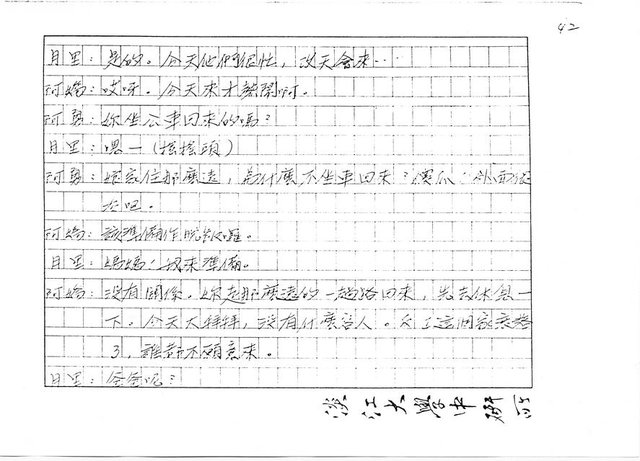 42
月里：是的。今天他們很忙，改天會來…
阿嬌：哎呀。今天來才熱鬧啊。
阿勇：你坐公車回來的嗎？
月里：嗯—（搖搖頭）
阿勇：妳家住那麼遠，為什麼不坐車回來？傻瓜，外面很
吧。
阿嬌：該準備作晚飯囉。
月里：媽媽，我來準備。
阿嬌：沒有關係。妳走那麼遠的一趟路回來，先去休息一
下。今天大拜拜，沒有什麼客人。這個家
了，誰都不願意來。
月里：爸爸呢？
淡江大學中研所